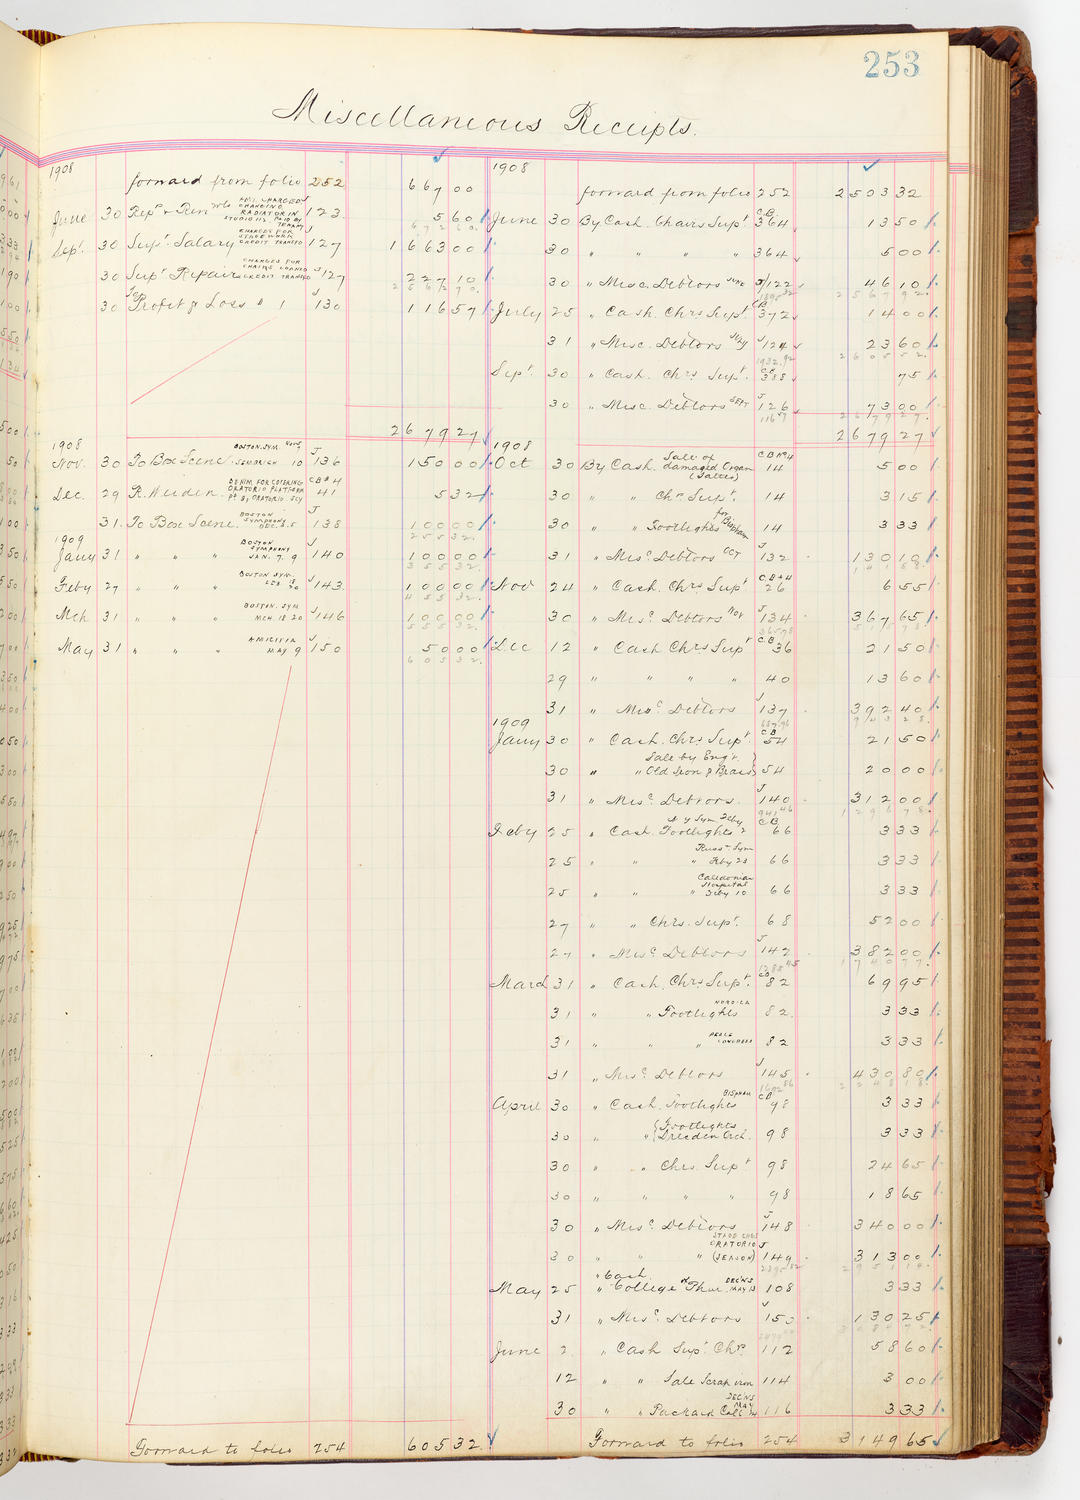 253
Miscellaneous Receipts.
1908
forward from folio 252 667 00
June 30 Reps & Renwls AMT. CHARGED CHANGING RADIATOR IN STUDIO 112. PAID BY TENANT J 123 5 60
672 60
Sept. 30 Supt. Salary CHARGES FOR STAGE WORK CREDIT TRANSFD J 127 1663 00
30 Supt Repairs CHARGES FOR CHAIRS LOANED CREDIT TRANSFD J 127 227 10
2562 70
30 To Profit & Loss " 1 J 130 116 57
2679 27
1908
Nov. 30 To Box Scene BOSTON SYM. NOV 7 SEMBRICH 10 J 136 150 00
Dec. 29 R. Weiden. DENIM FOR COVERING ORATORIO PLATFORM PD BY ORATORIO SCY CB#4 41 5 32
31. To Box Scene. BOSTON SYMPHONY DEC. 5 J 138 100 00
255 32
1909
Jany 31 " " " BOSTON SYMPHONY JAN. 7. 9 J 140 100 00
355 32
Feby 27 " " " BOSTON SYM. FEB 18 20 J 143 100 00
455 32
Mch 31 " " " BOSTON. SYM MCH. 18 20 J 146 100 00
555 32
May 31 " " " MAY 9 J 150 50 00
605 32
Forward to folio 254 605 32
1908
forward from folio 252 2503 32
June 30 By Cash. Chairs Supt. C.B. 364 13 50
30 " " " " 364 5 00
30 " Misc. Debtors JUNE J/122 46 10
2567 92
July 25 " Cash Chrs Supt. CB 372 14 00
31 " Misc. Debtors JULY J 124 23 60
2605 52
Sept. 30 " Cash. Chrs Supt. CB 388 75
30 " Misc. Debtors SEPT J 126 73 00
2679 27
2679 27
1908
Oct 30 By Cash. Sale of damaged Organ (Saltres) CB No 4 14 5 00
30 " " Chr Supt. 14 3 15
30 " " Footlights for Bispham 14 3 33
31 " Misc Debtors OCT J 132 130 10
141 58
Nov 24 " Cash Chrs Supt CB #4 26 6 55
30 " Misc. Debtors NOV J 134 367 65
515 78
Dec 12 " Cash Chrs Supt C.B. 36 21 50
29 " " " " 40 13 60
31 " Misc. Debtors J 137 392 40
943 28
1909
Jany 30 " Cash. Chrs Supt. C.B 54 21 50
30 " " Sale by Engr. Old Iron & Brass 54 20 00
31 " Misc. Debtors. J 140 312 00
1296 78
Feby 25 " Cash. Footlights N Y Sym Feby 2 C.B. 66 3 33
25 " " " Russn Sym Feby 23 66 3 33
25 " " " Caledonian Hospital Feby 10 66 3 33
27 " " Chrs. Supt. 68 52 00
27 " Misc Debtors J 142 382 00
1740 77
March 31 " Cash. Chrs Supt. CB 82 69 95
31 " " Footlights NORDICA 82. 3 33
31 " " " PEACE CONGRESS 82 3 33
31 " Misc. Debtors J 145 430 80
2248 18
April 30 " Cash Footlights BISPHAM CB 98 3 33
30 " " Footlights Dresden Orch. 98 3 33
30 " " Chrs. Supt 98 24 65
30 " " " " 98 18 65
30 " Misc. Debtors J 148 340 00
30 " " " STAGE CHGS ORATORIO (SEASON) J 149 313 00
2951 14
May 25 " Cash. " College of Phar. DEC'NS MAY 13 108 3 33
31 " Misc. Debtors J 150 130 25
3084 72
June 2 " Cash Supt. Chr 112 58 60
12 " " Sale Scrap iron 114 3 00
30 " " Packard Coll DEC'NS MAY 116 3 33
Forward to folio 254 3149 65